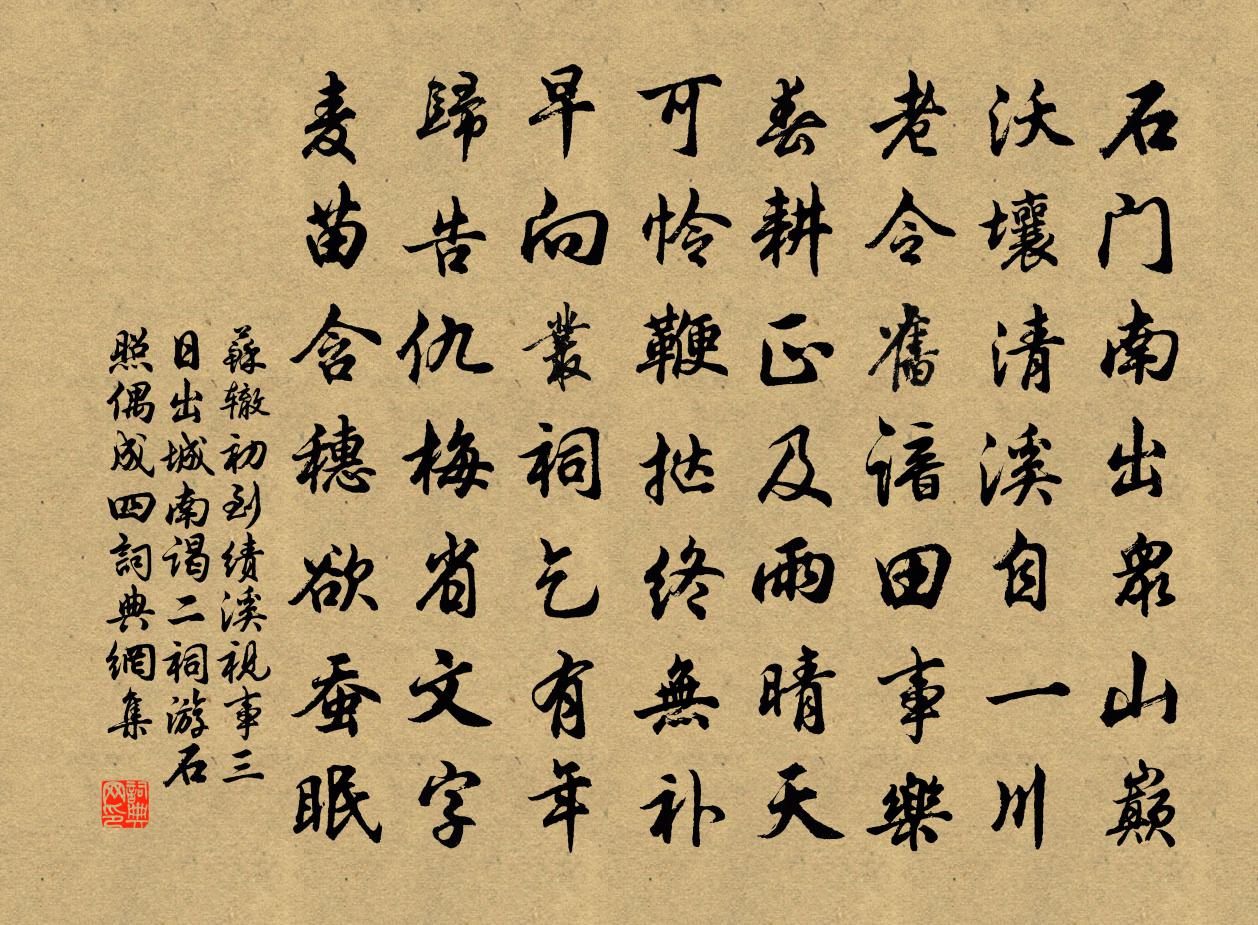 石门南出眾山巔
沃壤清溪自一川
老令舊諳田事樂
春耕正及雨晴天
可怜鞭挞终無补
早向叢祠乞有年
歸告仇梅省文字
麦苗含穗欲蚕眠
蘇辙初到绩溪视事三
日出城南谒二祠游石
照偶成四詞典網集
詞典
网印